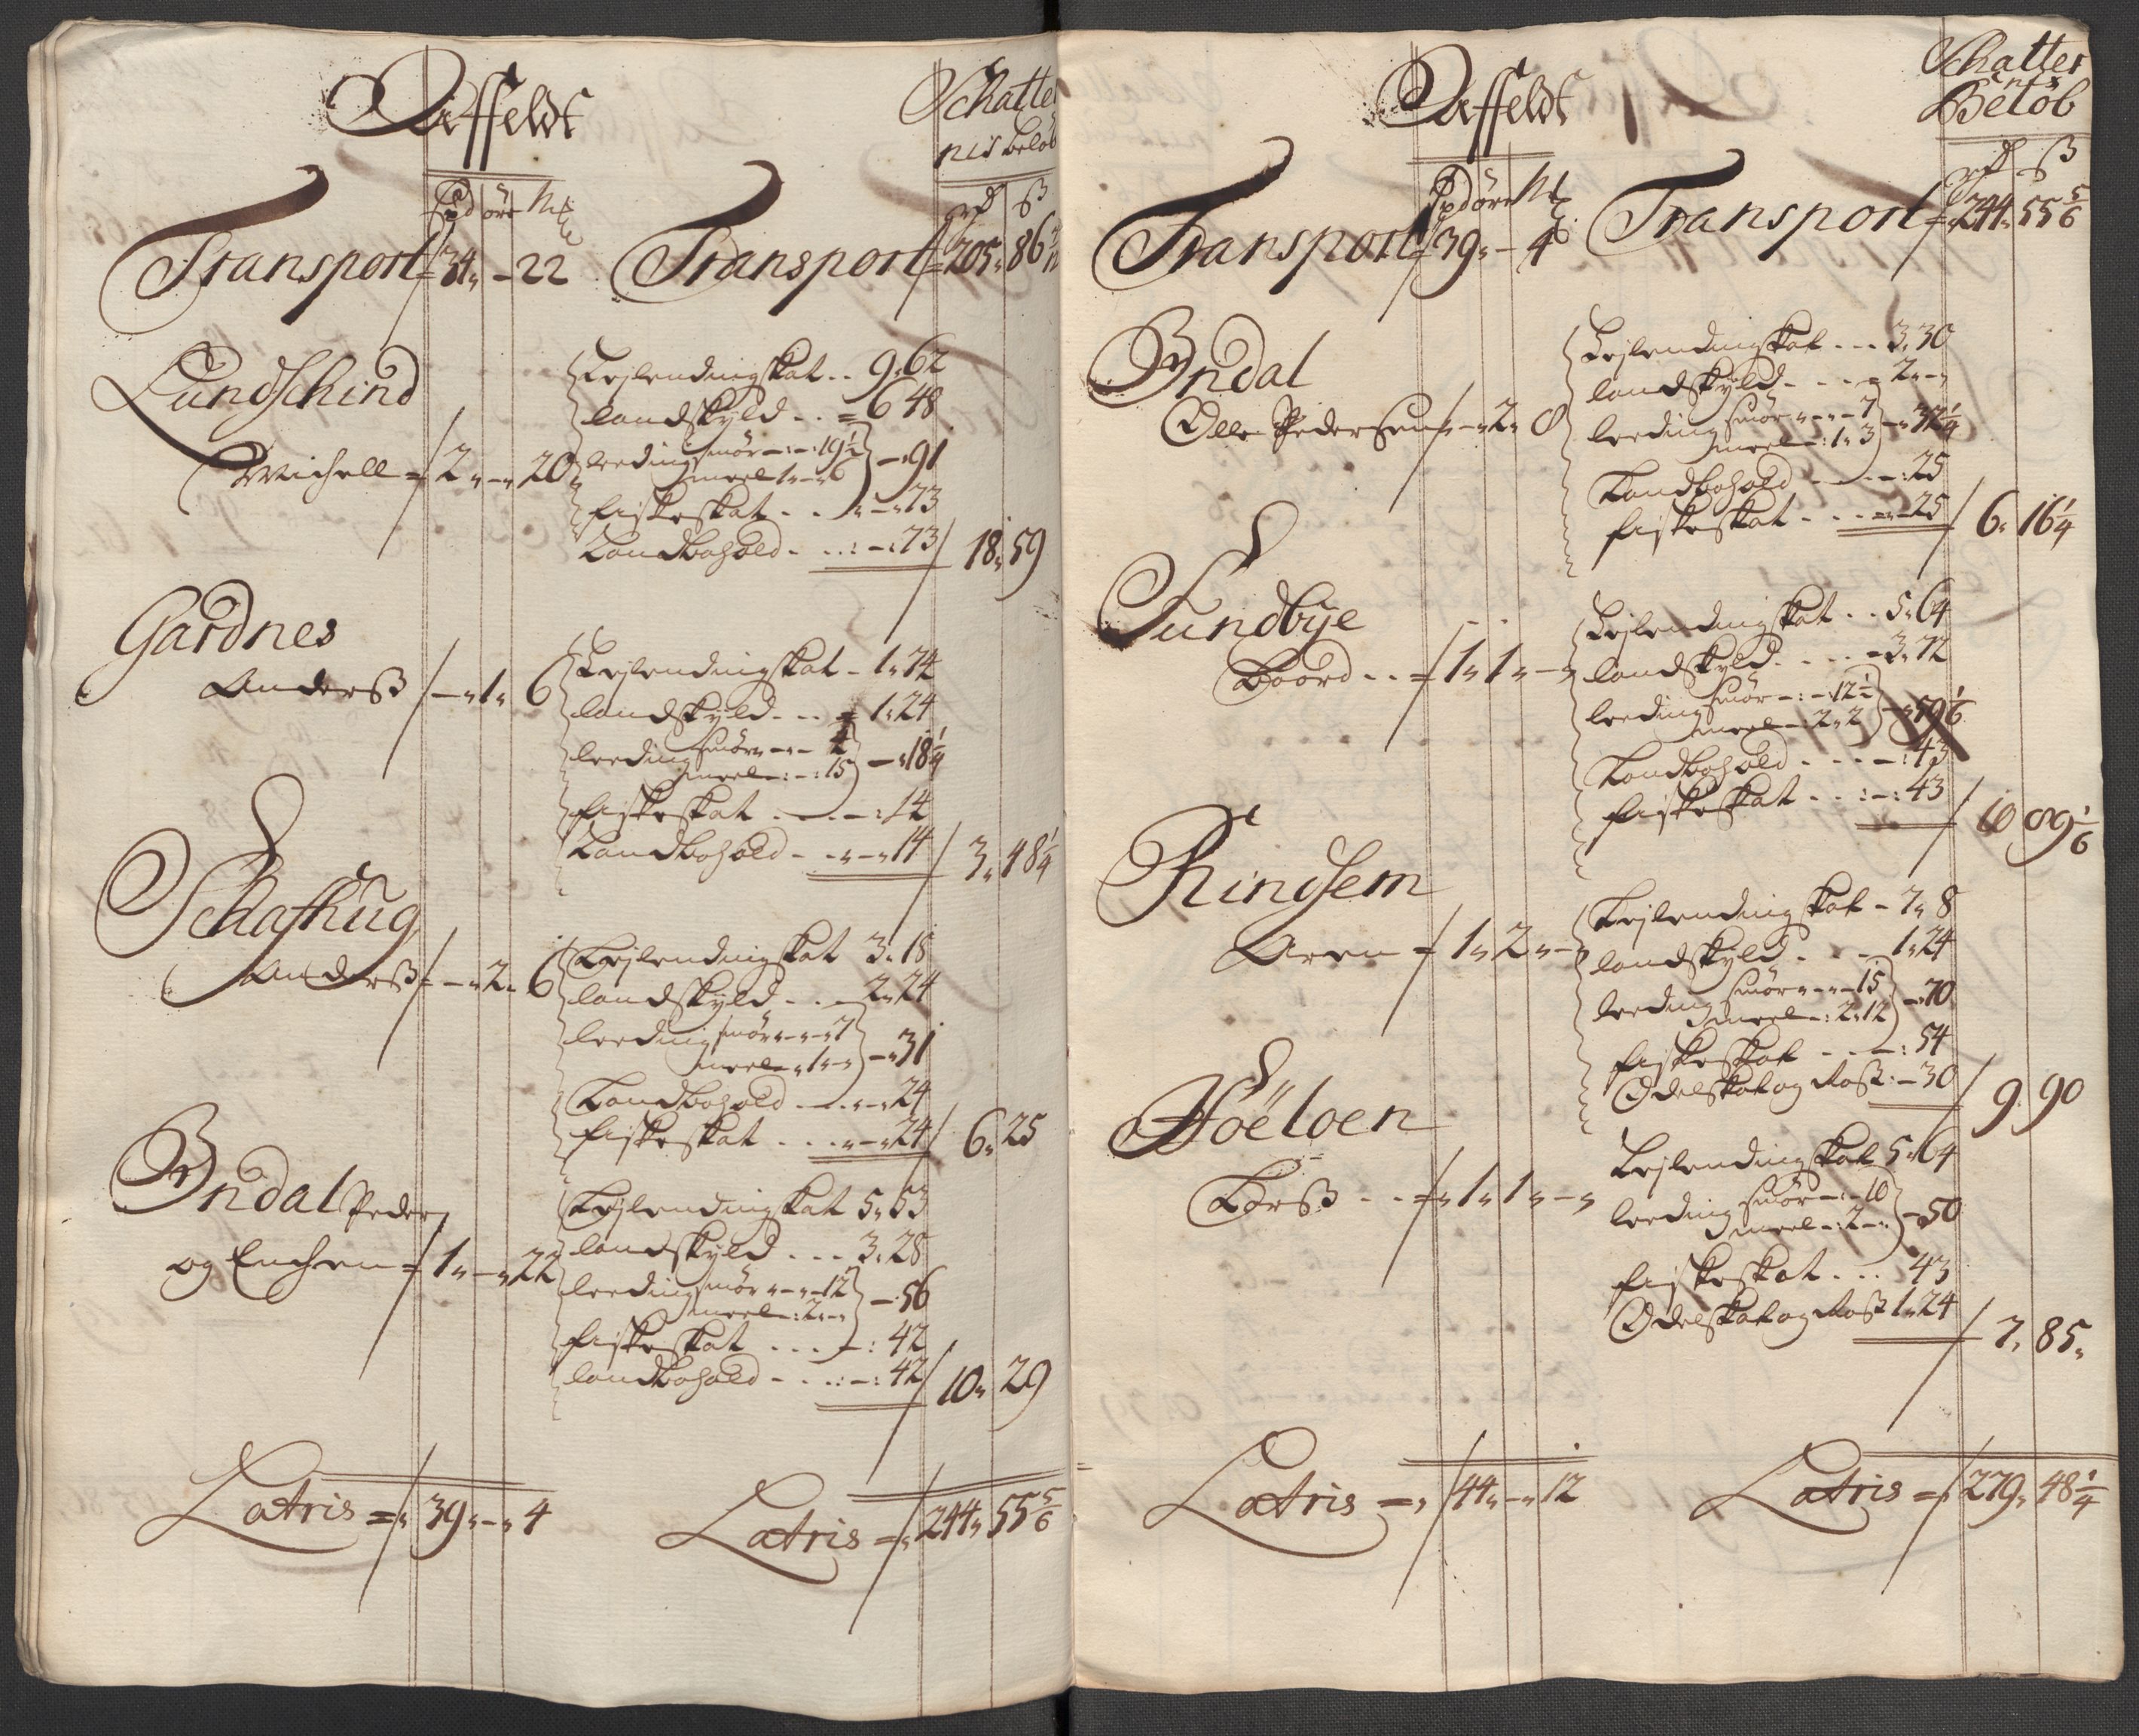 Aaffeldt
Schatter
nis beløb
Spd øre Mk
rd ß
Transport = 34 " - 22
Transport = 205 " 86 7/12
Lundschind
Michell = 2 " - " 20
Leylendingskat . . 9 " 62
landskyld . . = 6 48
leeding smør - : - : 19 1/2
meel 1 " - " 6
- " 91
fiskeskat . . " - " 73
Landbohold - . . : - : 73
18 " 59
Gardnes
Anderß - " 1 " 6
Leylendingskat - 1 " 74
landskyld . . . = 1 " 24
leeding smør " - " - 4
meel - : - : 15
- " 18 1/4
fiskeskat . - . - : 14
Landbohold - . " - " 14
3 " 48 1/4
Schafhug
Anderß = - " 2 " 6
Leylendingskat 3 " 18
landskyld . . - 2 " 24
leeding smør " - " - " 7
meel " 1 " - "
- " 31
Landbohold . - . " - " 24
fiskeskat . . . " - " 24
6 " 25
Indal Peder
og Enchen = 1 " - " 22
Leylendingskat 5 " 53
landskyld . . . 3 " 28
leeding smør " - " - " 12
meel - : 2 " - "
- " 56
fiskeskat . . . - : 42
landbohold - . . : - : 42
10 " 29
Latris = 39 " - " 4
Latris = 244 " 55 5/6
Aaffeldt
Schatter
nis
Beløb
Spd øre Mk
rd ß
Transport 39 " - 4
Transport = 244 " 55 5/6
Indal
Olle Pedersen - " 2 " 8
Leylendingskat . . . 3 " 30
landskyld - . . - = 2 " - "
leeding smør " - " - 7
meel - : 1 " 3
- " 32 1/4
Landbohold . - . - : 25
fiskeskat . . . = " - 25
6 " 16 1/4
Sundbye
Baard . . = 1 " 1 " - "
Leylendingskat . . 5 " 64
landskyld . . . - = 3 " 72
leeding smør - : - : 12 1/2
meel - : 2 " 2
- " 59 1/6
Landbohold . . . - : 43
fiskeskat . . . : - : 43
10 89 1/6
Rindsem
Aren = 1 " 2 " - "
Leylendingskat - 7 " 8
landskyld . . - 1 " 24
leeding smør " - " - 15
meel - : 2 " 12
- " 70
fiskeskat . . - : 54
Odelskat og Roß : - 30
9 " 90
Høeloen
Larß . . = 1 " 1 " - "
Leylendingskat 5 " 64
leeding smør - : - 10
meel - : 2 " - "
- 50
fiskeskat . . . 43
Odelskat og Roß 1 " 24
7 " 85 "
Latris = 44 " - " 12
Latris = 279 " 48 1/4